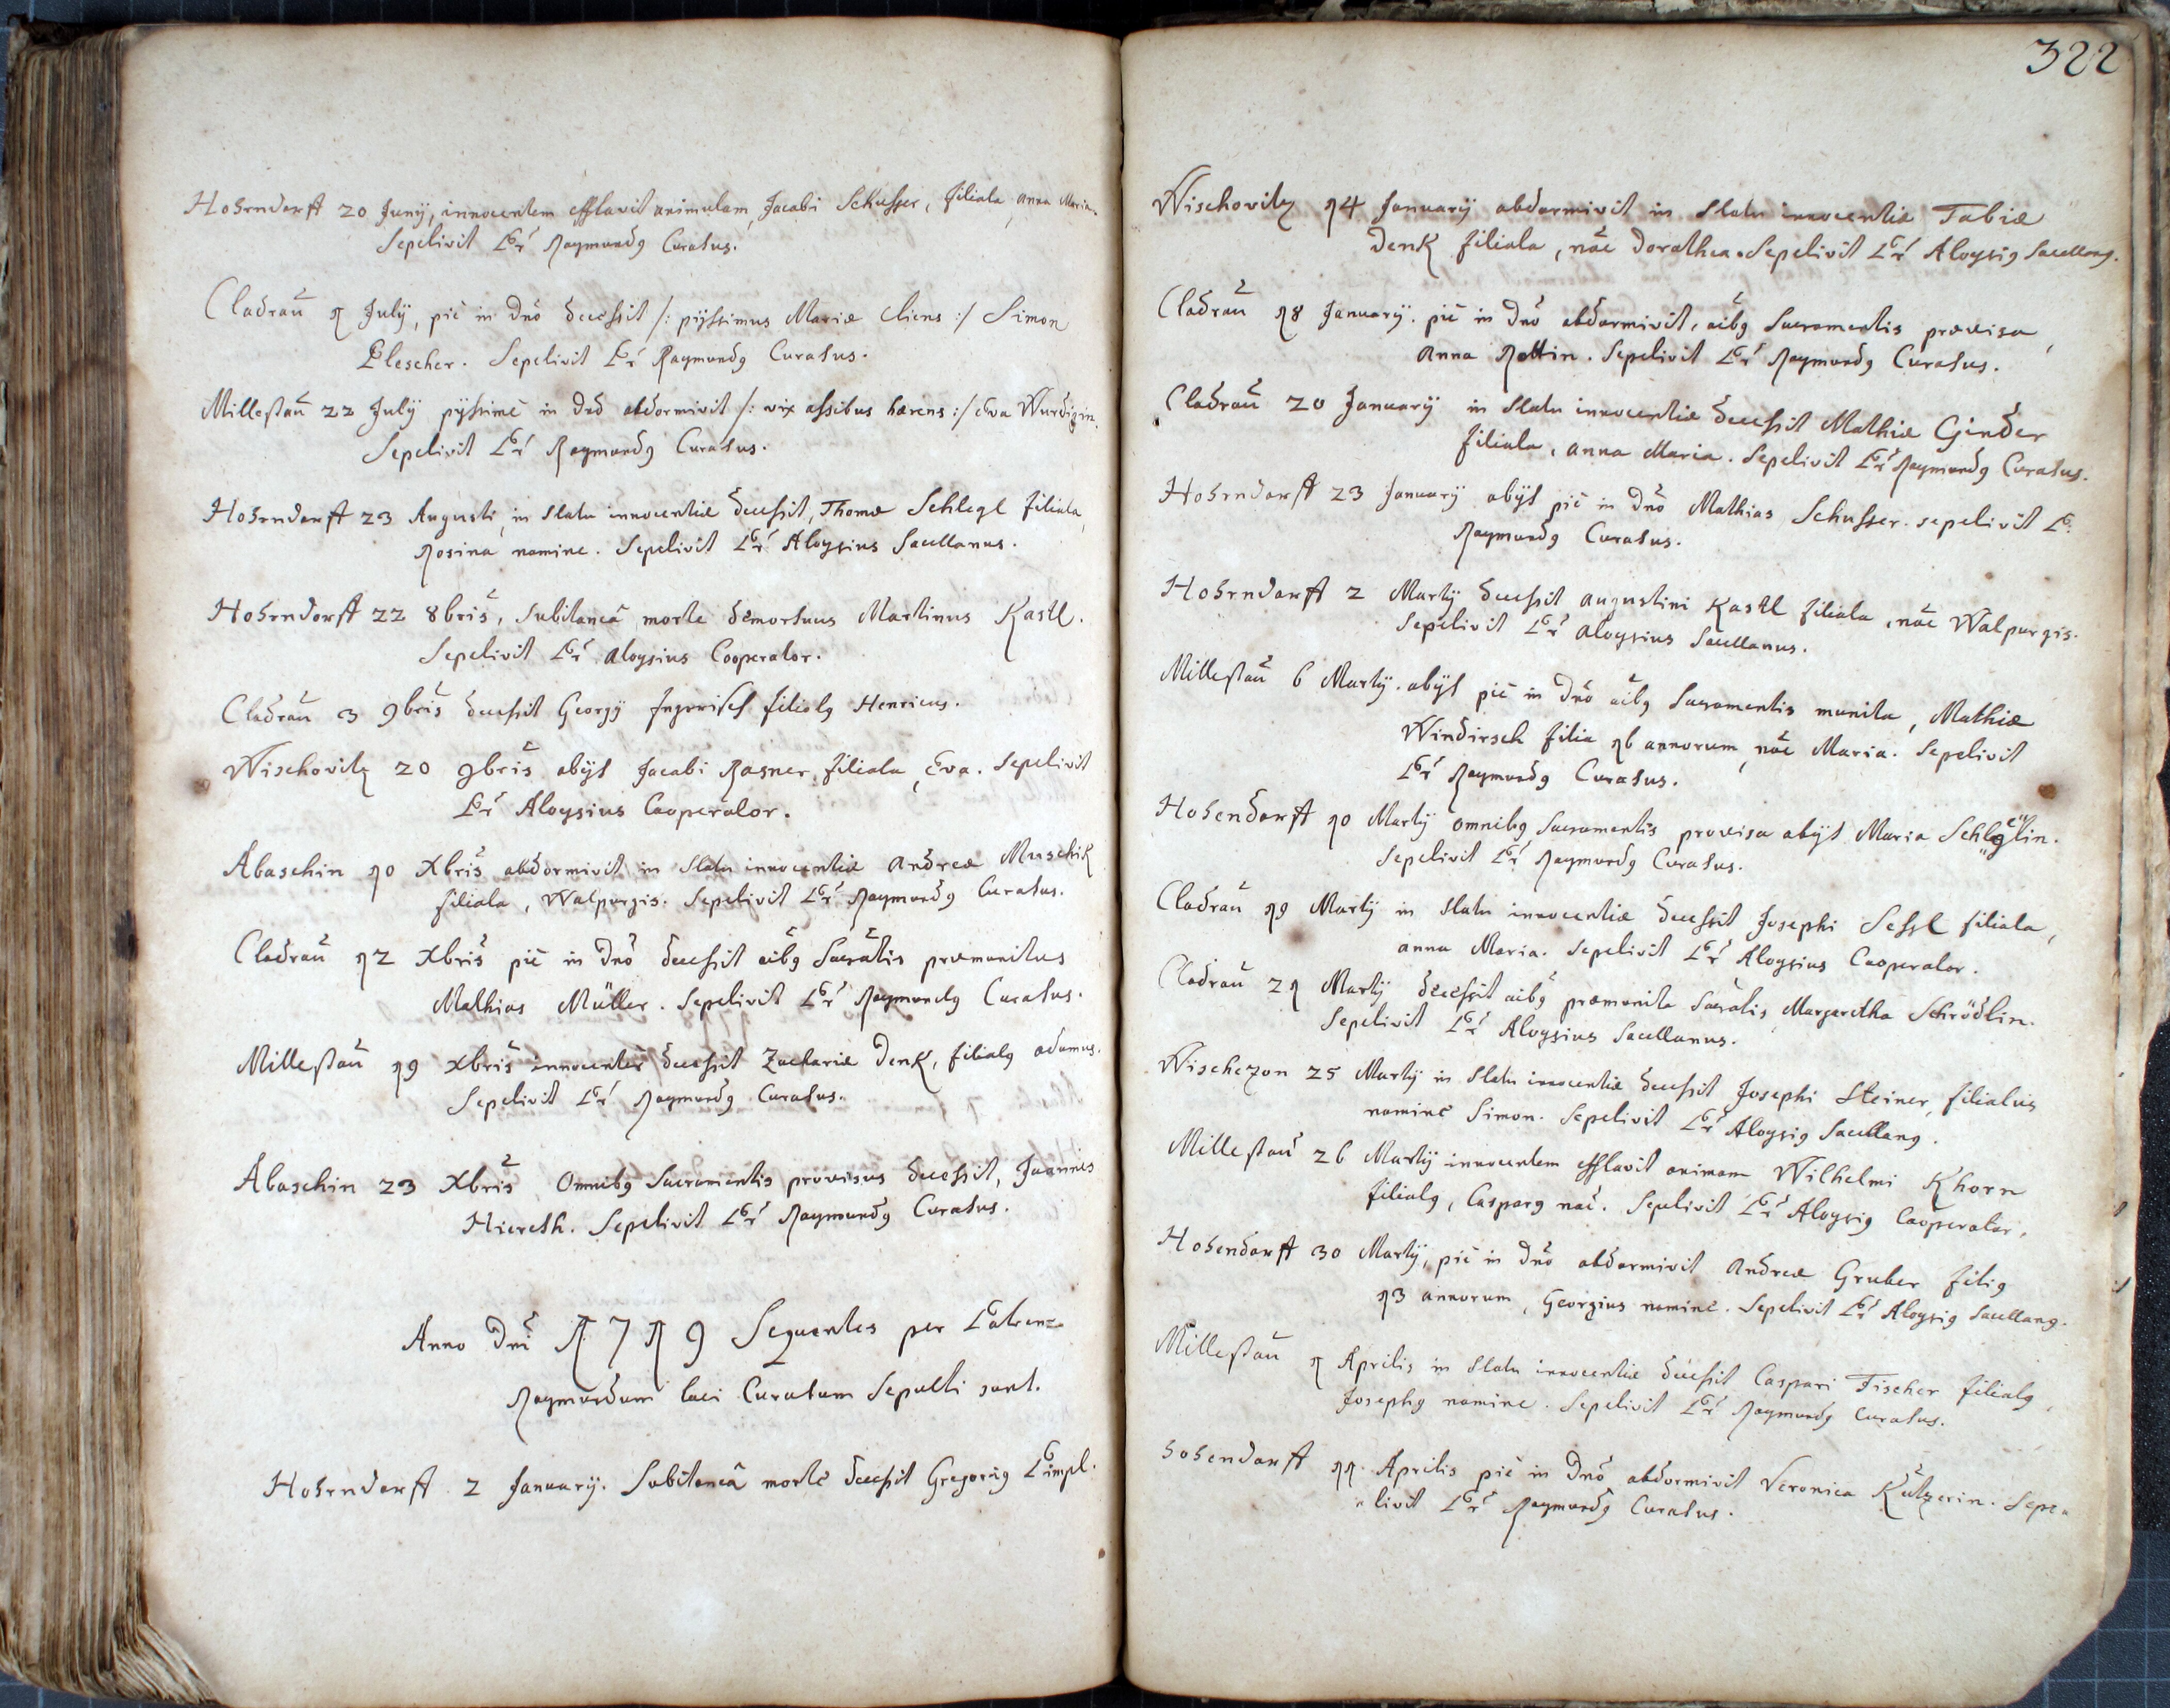 Hohrndorff 20 Junij, innocentem efflavit animulam Jacobi Schusser, filiola, Anna Maria.
Sepelivit P. Raymundg Curatus.
Cladrau 1 July, pie in Dno decessit /: pijssimus Mariæ cliens :/ Simon
Plescher. Sepelivit Pr Raymundg Curatus.
Millestau 22 July pijssime in Dno abdormivit /: vix assibus hærens :/ Eva Wurdigin.
Sepelivit Pr Raymundg Curatus.
Hohrndorff 23 Augusti in statu innocentiæ decessit, Thomæ Schlegl filiola,
Rosina nomine. Sepelivit Pr Aloysius Sacellanus.
Hohrndorff 22 8bris, subitanea morte demortuus Martinus Kastl.
Sepelivit Pr Aloysius Cooperator.
Cladrau 3 9bris decessit Georgij filiolg Henricus.
Wischovitz 20 9bris obijt Jacobi Rasner filiola, Eva. Sepelivit
Pr Aloysius Cooperator.
Abaschin 10 Xbris abdormivit in statu innocentiæ Andreæ Muschik
filiola, Walpurgis. Sepelivit Pr Raymundg Curatus.
Cladrau 12 Xbris pie in Dno decessit oibg Sacratis præmonitus
Mathias Müller. Sepelivit Pr Raymundg Curatus.
Millestau 19 Xbris innocenter decessit Zachariæ Denk, filiolg Adamus.
Sepelivit Pr Raymundg Curatus.
Abaschin 23 Xbris Omnibg Sacramentis provisus decessit, Joannes
Hiereth. Sepelivit Pr Raymundg Curatus.
Anno Dni 1719 Sequentes per Patrem
Raymundum loci Curatum Sepulti sunt.
Hohrndorff 2 January. Subitanea morte decessit Gregorig Pimpl.
322
Wischovitz 14 January abdormivit in statu innocentiæ Tobiæ
Denk filiola, noe Dorothea. Sepelivit Pr Aloysig Sacellang.
Cladrau 18 January. pie in Dno abdormivit, oibg Sacramentis provisa,
Anna Rottin. Sepelivit Pr Raymundg Curatus.
Cladrau 20 January in statu innocentiæ decessit Mathiæ Ginder
filiola, Anna Maria. Sepelivit Pr Raymundg Curatus.
Hohrndorff 23 January obijt pie in Dno Mathias Schusser. sepelivit P.
Raymundg Curatus.
Hohrndorff 2 Martij decessit Augustini Kastl filiola, noe Walpurgis.
Sepelivit Pr Aloysius Sacellanus.
Millestau 6 Martij. obijt pie in Dno oibg Sacramentis munita, Mathiæ
Windirsch filia 16 annorum, noe Maria. Sepelivit
Pr Raymundg Curatus.
Hohendorff 10 Martij omnibg Sacramentis provisa obijt Maria Schleglin.
Sepelivit Pr Raymundg Curatus.
Cladrau 19 Martij in statu innocentiæ decessit Josephi Sessl filiola,
Anna Maria. Sepelivit Pr Aloysius Cooperator.
Cladrau 21 Martij decessit oibg præmonita Sacratis, Margaretha Schrödlin.
Sepelivit Pr Aloysius Sacellanus.
Wischezon 25 Martij in statu innocentiæ decessit Josephi Steiner, filiolus
nomine Simon. Sepelivit Pr Aloysig Sacellang.
Millestau 26 Martij innocentem efflavit animam Wilhelmi Khorn
filiolg, Casparg noe. Sepelivit Pr Aloysig Cooperator.
Hohendorff 30 Martij, pie in Dno abdormivit Andreæ Gruber filig
13 annorum, Georgius nomine. Sepelivit Pr Aloysig Sacellang.
Millestau 1 Aprilis in statu innocentiæ decessit Caspari Fischer filiolg,
Josephg nomine. Sepelivit Pr Raymundg Curatus.
Hohendorff 11. Aprilis pie in Dno abdormivit Veronica Kutzerin. Sepe-
livit Pr Raymundg Curatus.